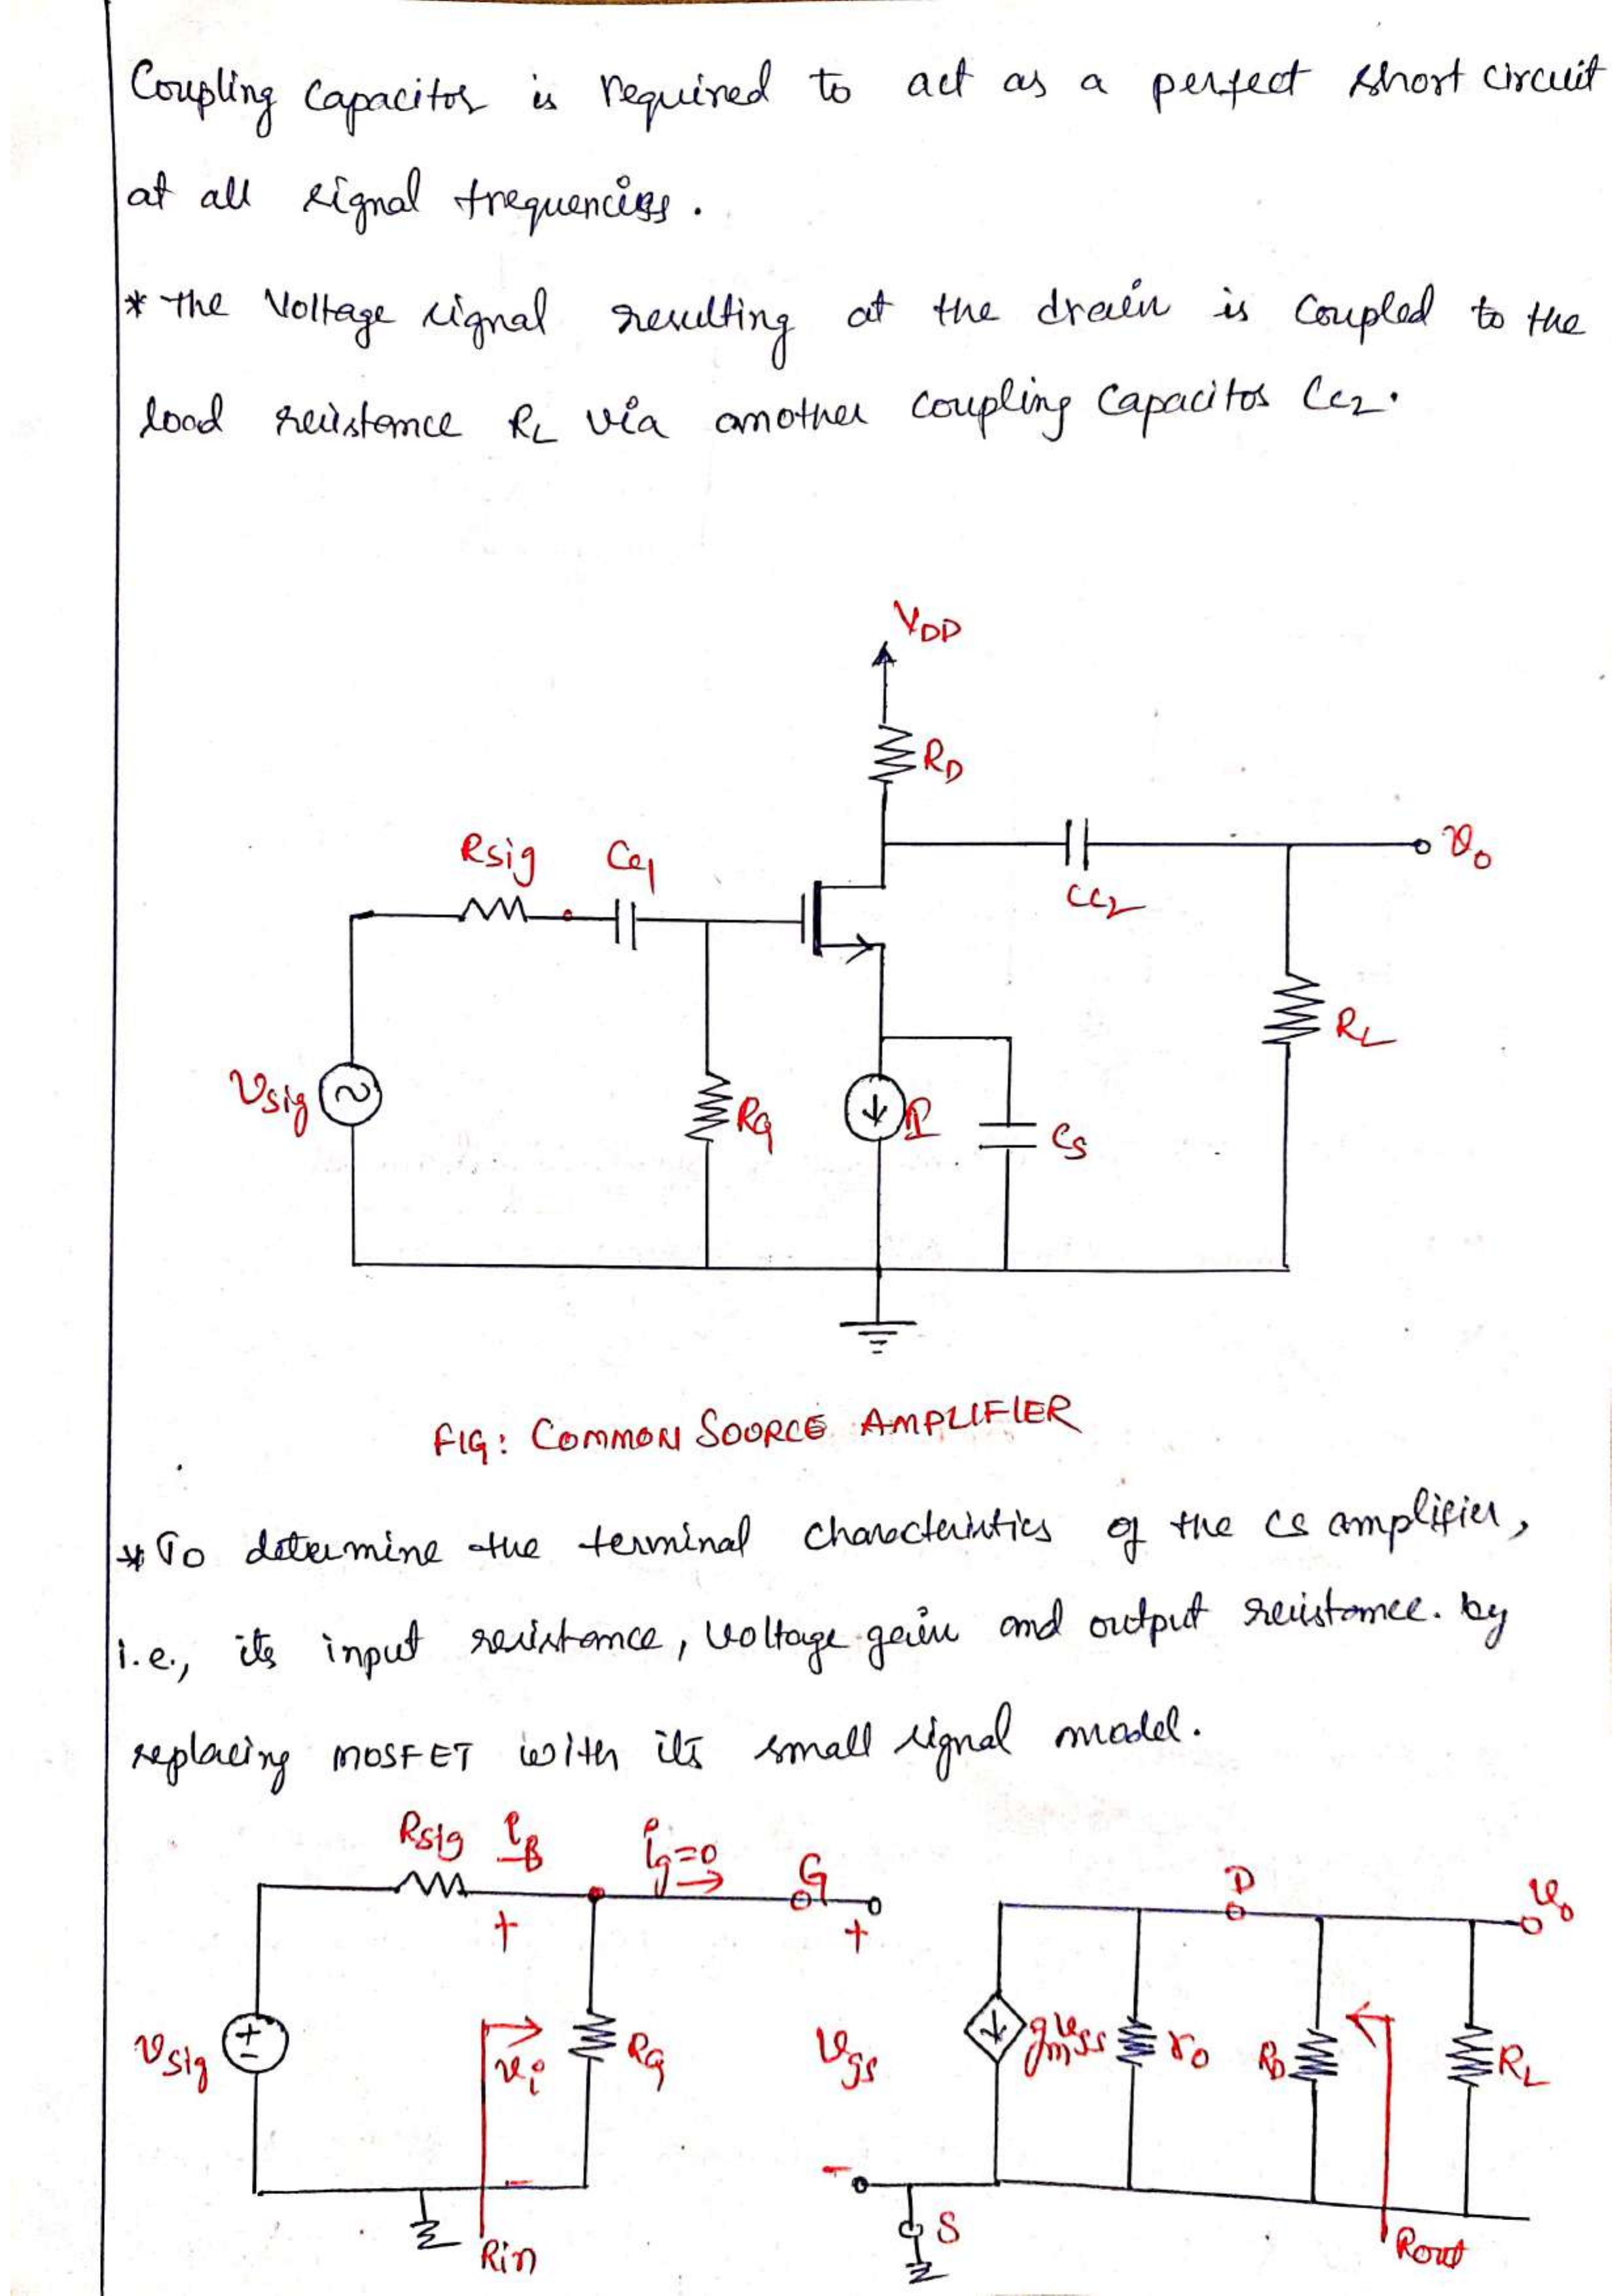 Coupling Capacitor is required to act as a perfect short circuit
at all signal frequencies.
* The Voltage signal resulting at the drain is coupled to the
load resistance RL via another coupling capacitor CC2.
VDD
RD
Rsig CC1
vo
CC2
RL
Vsig
RG
I
CS
FIG: COMMON SOURCE AMPLIFIER
* To determine the terminal characteristics of the CS amplifier,
i.e., its input resistance, voltage gain and output resistance. by
replacing MOSFET with its small signal model.
Rsig
ig=0
G
D
vo
+
+
vsig
+
-
vi
RG
vgs
gmvgs
ro
RD
RL
-
-
S
Rin
Rout